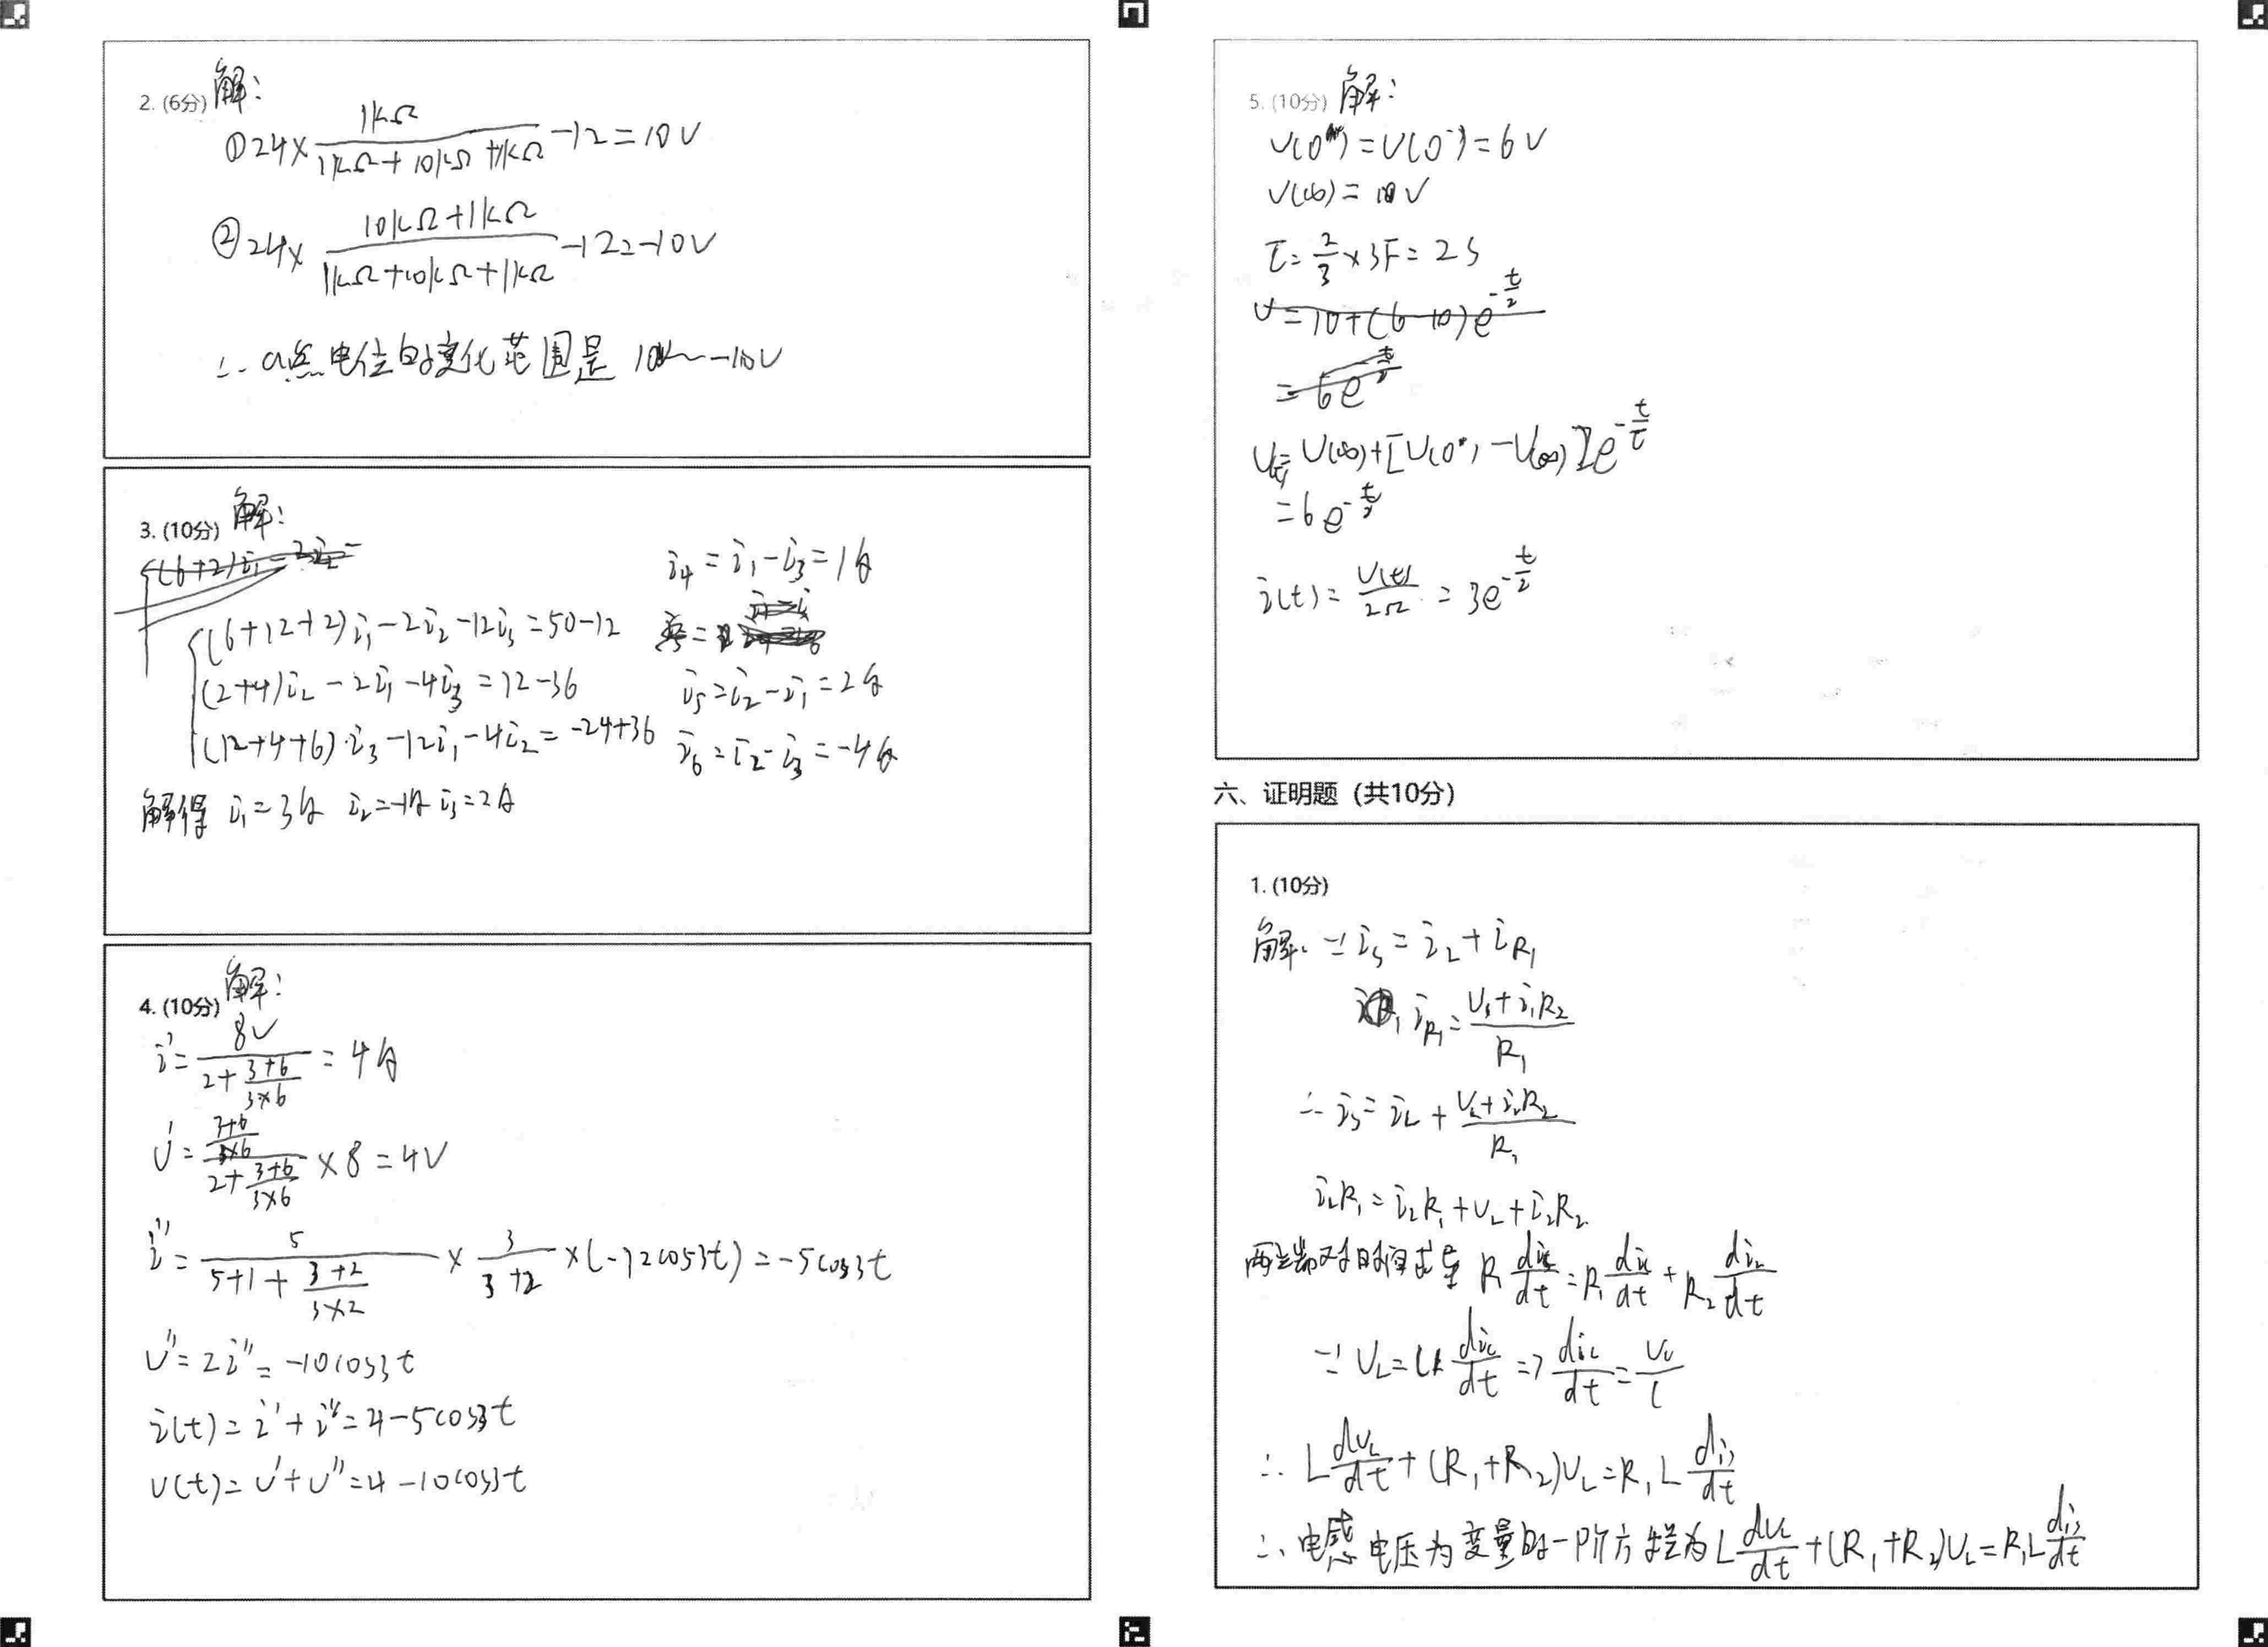 2. (6分) 解:
①24×1kΩ/(1kΩ+10kΩ+1kΩ)-12=10V
②24×(10kΩ+1kΩ)/(1kΩ+10kΩ+1kΩ)-12=-10V
∴ a点电位的变化范围是 10V~-10V
3. (10分) 解:
(6+12+2)i₁-2i₂-12i₃=50-12
(2+4)i₂-2i₁-4i₃=12-36
(12+4+6)·i₃-12i₁-4i₂=-24+36
解得 i₁=3A i₂=-1A i₃=2A
i₄=i₁-i₃=1A
i₅=i₂-i₁=2A
i₆=i₂-i₃=-4A
4. (10分) 解:
i'=8V/(2+(3+6)/(3×6))=4A
U'=((3+6)/(3×6))/(2+(3+6)/(3×6))×8=4V
i''=5/(5+1+(3+2)/(3×2))×3/(3+2)×(-12cos3t)=-5cos3t
U''=2i''=-10cos3t
i(t)=i'+i''=4-5cos3t
U(t)=U'+U''=4-10cos3t
5. (10分) 解:
U(0⁺)=U(0⁻)=6V
U(∞)=10V
τ=2/3×3F=2S
U=10+(6-10)e^(-t/2)
=6e^(-t/2)
U(t)=U(∞)+[U(0⁺)-U(∞)]e^(-t/τ)
=6e^(-t/2)
i(t)=U(t)/2Ω=3e^(-t/2)
六、证明题（共10分）
1. (10分)
解: ∵ iₛ=i_L+i_R₁
i_R₁=(U_L+i_LR₂)/R₁
∴ iₛ=i_L+(U_L+i_LR₂)/R₁
i_LR₁=i_LR₁+U_L+i_LR₂
两端对时间求导 R₁ diₛ/dt=R₁ di_L/dt+R₂ di_L/dt
∵ U_L=L di_L/dt => di_L/dt=U_L/L
∴ L dU_L/dt+(R₁+R₂)U_L=R₁L diₛ/dt
∴ 电感电压为变量的一阶方程为 L dU_L/dt+(R₁+R₂)U_L=R₁L diₛ/dt